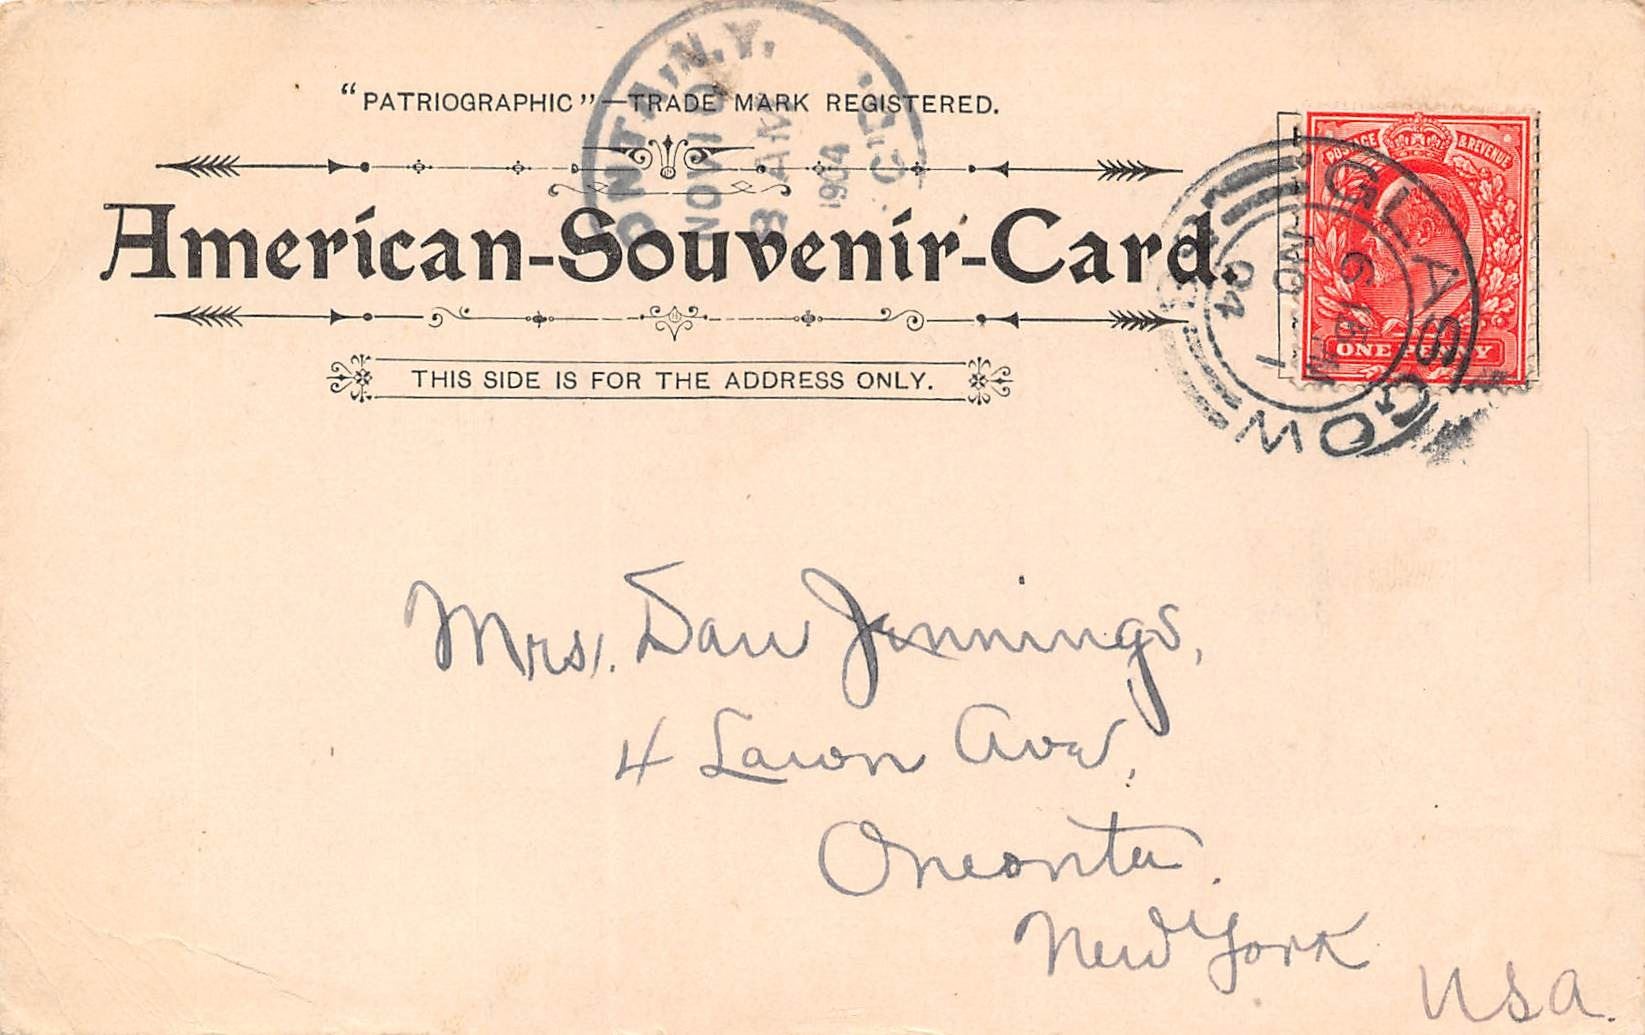 "PATRIOGRAPHIC"—TRADE MARK REGISTERED.
American-Souvenir-Card.
THIS SIDE IS FOR THE ADDRESS ONLY.
ONTA, N.Y.
NOV 10
8 AM
1904
POSTAGE & REVENUE
ONE PENNY
GLASGOW
04
Mrs. Dan Jennings,
4 Lawn Ave,
Oneonta.
New York
USA.